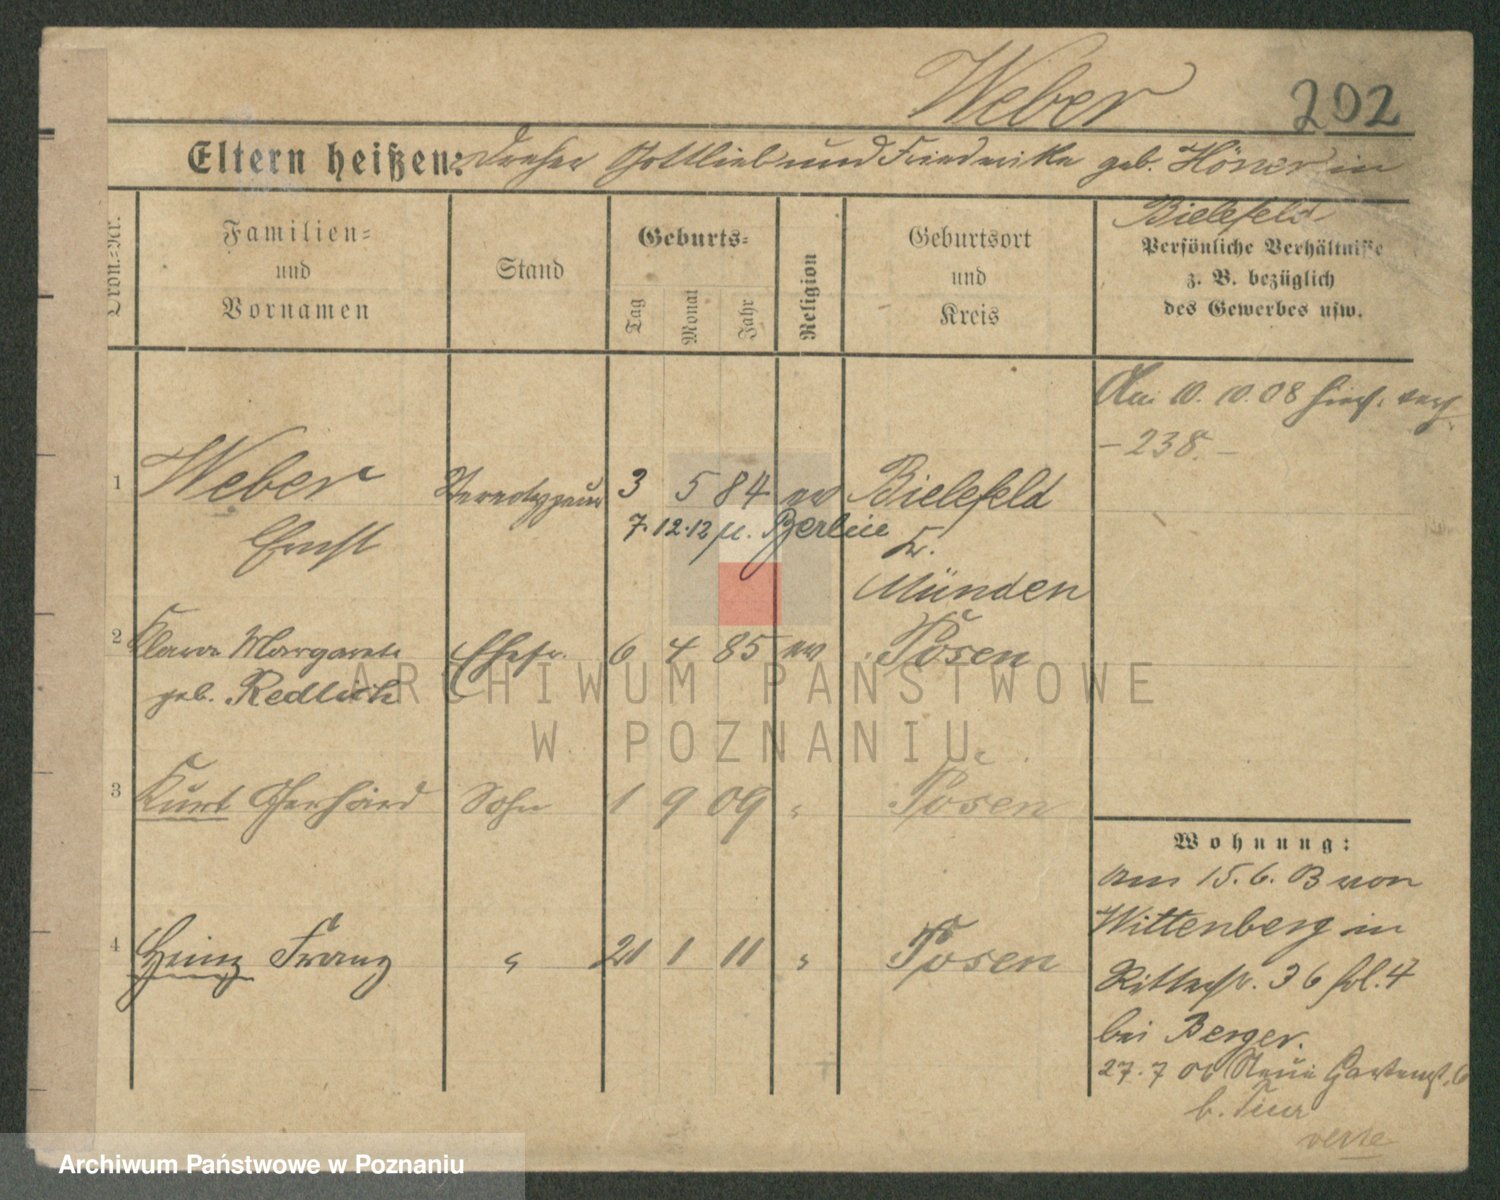 Weber
202
Eltern heißen: Dreher Gottlieb und Friederike geb. Höner in
Bielefeld
Ordn.-Nr.
Familien-
und
Vornamen
Stand
Geburts-
Tag
Monat
Jahr
Religion
Geburtsort
und
Kreis
Persönliche Verhältnisse
z. B. bezüglich
des Gewerbes usw.
Am 10. 10. 08 hier
- 238. -
1
Weber
Ernst
Stereotypeur
3 5 84 ev
Bielefeld
Kr.
Münden
7.12.12 n. Berlin
2
Klara Margarete
geb. Redlich
Ehefr.
6 4 85 ev
Posen
3
Kurt Gerhard
Sohn
1 9 09 "
Posen
4
Heinz Franz
"
21 1 11 "
Posen
Wohnung:
am 15. 6. von
Wittenberg in
Ritterstr. 36 hl. 4
bei Berger.
27. 7 06 Neue Gartenstr. 6
b.
ARCHIWUM PAŃSTWOWE
W POZNANIU
Archiwum Państwowe w Poznaniu